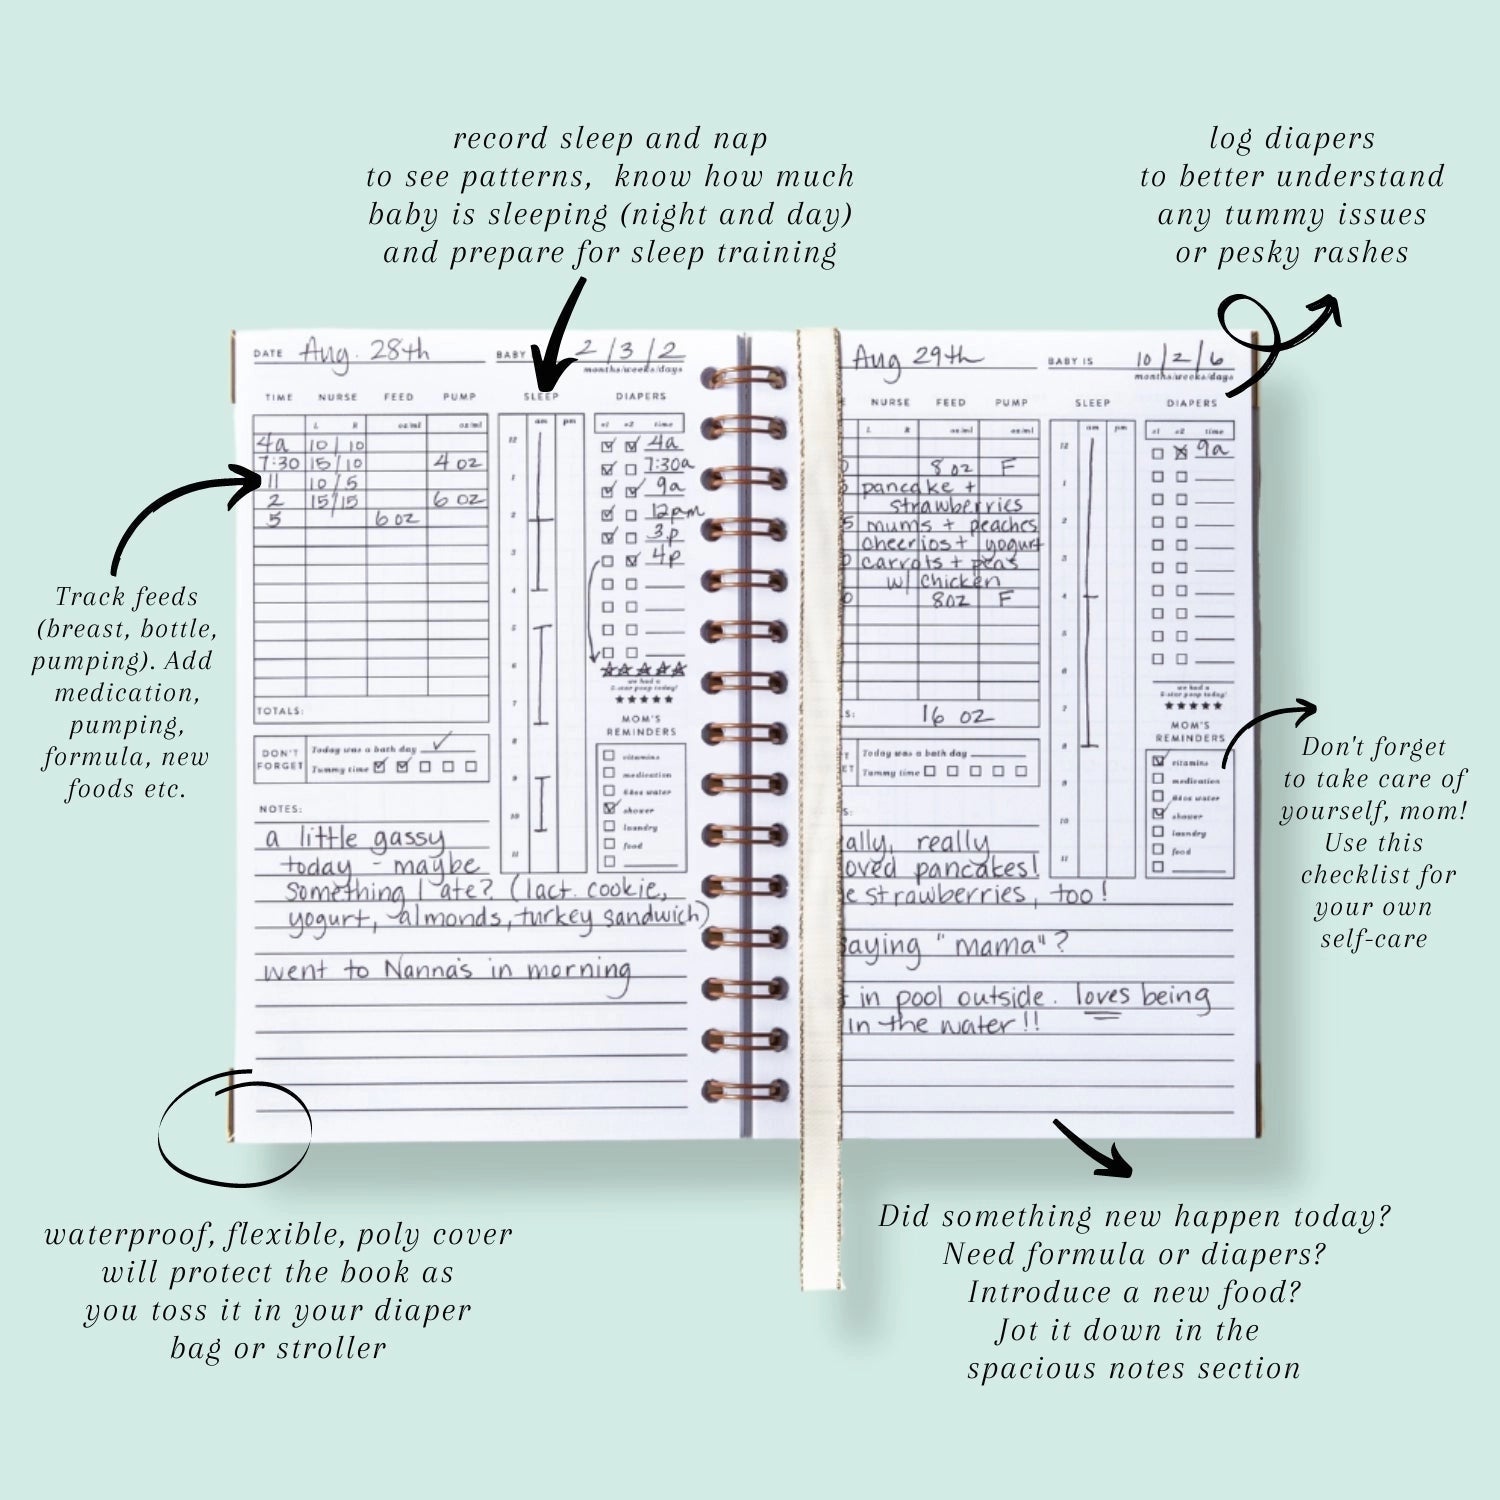 record sleep and nap
to see patterns, know how much
baby is sleeping (night and day)
and prepare for sleep training
log diapers
to better understand
any tummy issues
or pesky rashes
Track feeds
(breast, bottle,
pumping). Add
medication,
pumping,
formula, new
foods etc.
DATE Aug. 28th BABY 2/3/2
months/weeks/days
TIME NURSE FEED PUMP SLEEP DIAPERS
L R oz/ml oz/ml am pm #1 #2 time
4a 10/10
7:30 15/10 4 oz
11 10/5
2 15/15 6 oz
5 6 oz
TOTALS:
12
1
2
3
4
5
6
7
8
9
10
11
4a
7:30a
9a
12pm
3p
4p
we had a
5-star poop today!
MOM'S
REMINDERS
vitamins
medication
64oz water
shower
laundry
food
DON'T
FORGET
Today was a bath day
Tummy time
NOTES:
a little gassy
today - maybe
something I ate? (lact. cookie,
yogurt, almonds, turkey sandwich)
went to Nanna's in morning
Aug 29th BABY IS 10/2/6
months/weeks/days
NURSE FEED PUMP SLEEP DIAPERS
L R oz/ml oz/ml am pm #1 #2 time
8 oz F
pancake +
strawberries
5 mums + peaches
cheerios + yogurt
carrots + peas
w/ chicken
8oz F
S: 16 oz
12
1
2
3
4
5
6
7
8
9
10
11
9a
we had a
5-star poop today!
MOM'S
REMINDERS
vitamins
medication
64oz water
shower
laundry
food
Today was a bath day
Tummy time
S:
ally, really
oved pancakes!
e strawberries, too!
saying "mama"?
t in pool outside. loves being
in the water!!
Don't forget
to take care of
yourself, mom!
Use this
checklist for
your own
self-care
waterproof, flexible, poly cover
will protect the book as
you toss it in your diaper
bag or stroller
Did something new happen today?
Need formula or diapers?
Introduce a new food?
Jot it down in the
spacious notes section